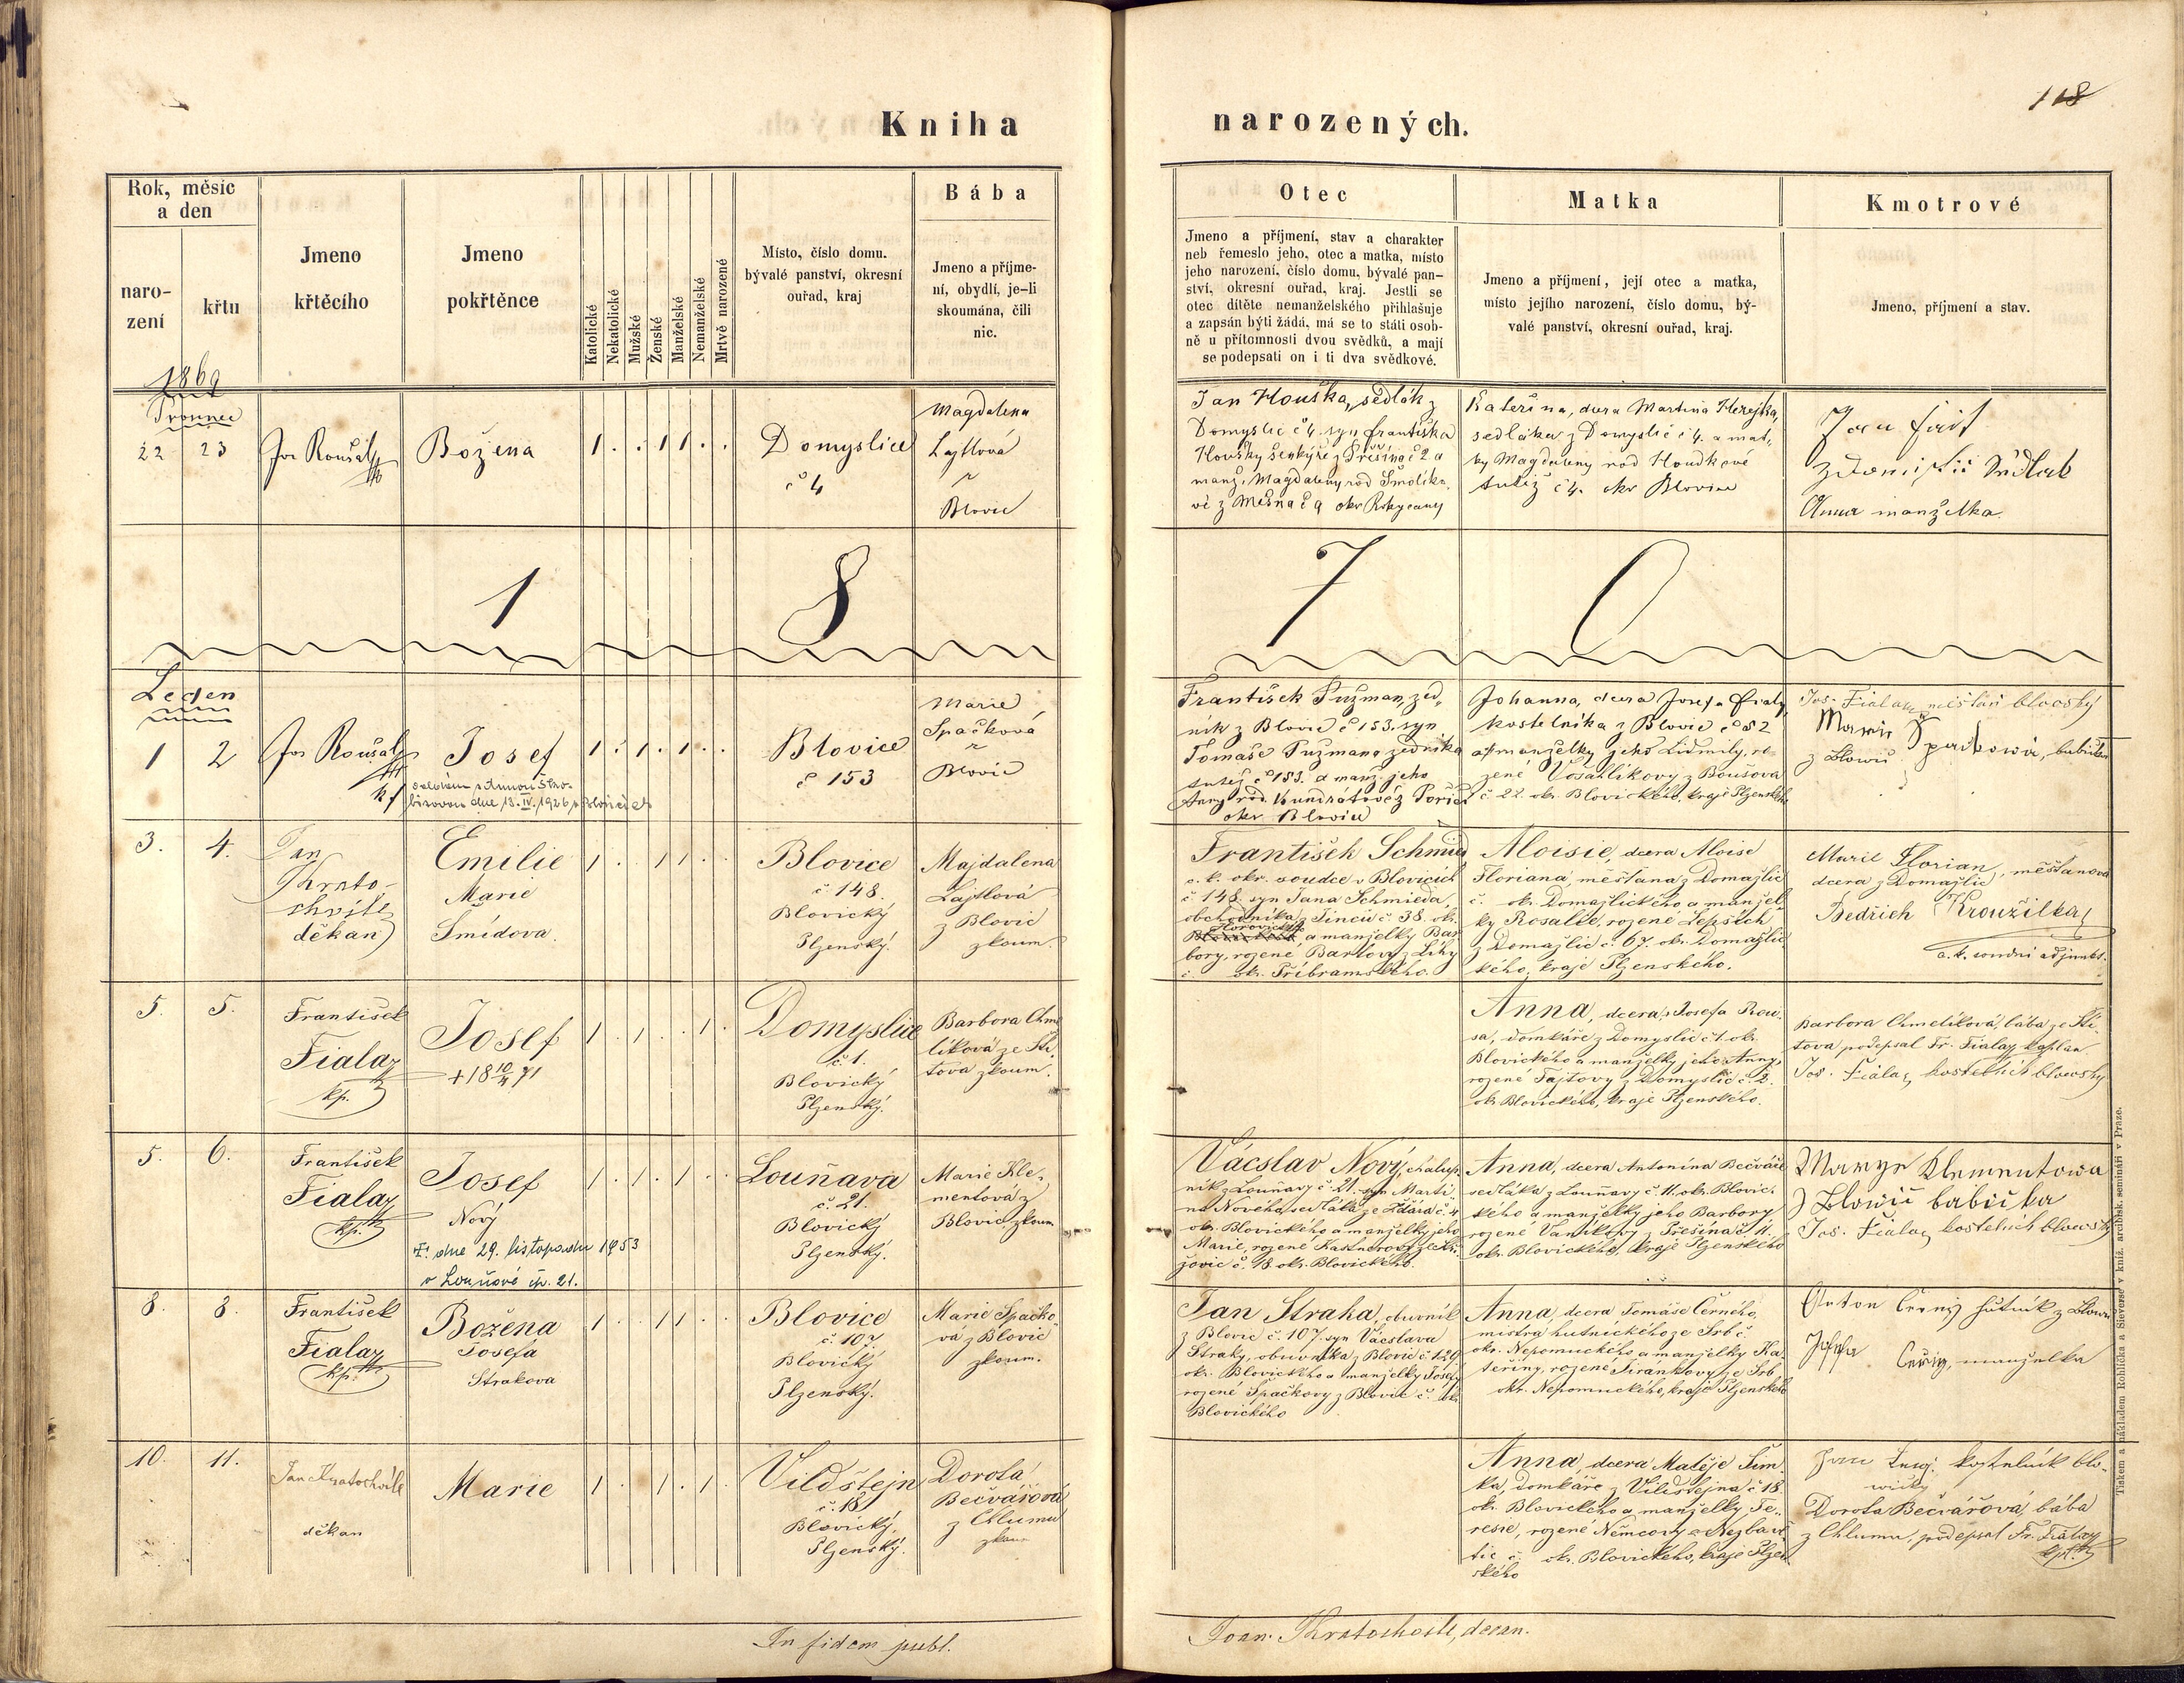 118
Kniha narozených.
Rok, měsíc
a den
naro-
zení
křtu
Jmeno
křtěcího
Jmeno
pokřtěnce
Katolické
Nekatolické
Mužské
Ženské
Manželské
Nemanželské
Mrtvě narozené
Místo, číslo domu.
bývalé panství, okresní
ouřad, kraj
Bába
Jmeno a příjme-
ní, obydlí, je-li
skoumána, čili
nic.
Otec
Jmeno a příjmení, stav a charakter
neb řemeslo jeho, otec a matka, místo
jeho narození, číslo domu, bývalé pan-
ství, okresní ouřad, kraj. Jestli se
otec dítěte nemanželského přihlašuje
a zapsán býti žádá, má se to státi osob-
ně u přítomnosti dvou svědků, a mají
se podepsati on i ti dva svědkové.
Matka
Jmeno a příjmení, její otec a matka,
místo jejího narození, číslo domu, bý-
valé panství, okresní ouřad, kraj.
Kmotrové
Jmeno, příjmení a stav.
1869
22 23
Božena
1 . . 1 1 . .
Domyslice
č 4
Magdalena
Lajtlová
z
Blovic
Jan Houška, sedlák z
Domyslic č 4. syn Františka
Houšky
manž. Magdaleny rod Smolíko
vé z
Kateřina, dcera Martina
sedláka z Domyslic č 4. a man
ky Magdaleny rod Houdkové
tutéž č 4. okr Blovice
Anna manželka
1 8 7 0
Leden
1 2
Josef
1 . 1 . 1 . .
Blovice
č 153
Marie
Spačková
z
Blovic
František Sužman, zed
ník z Blovic č 153. syn
Tomáše Sužmana zedníka
tutéž č 153. a manž. jeho
okr Blovice
Johanna, dcera Josefa
kostelníka z Blovic č 52
a manželky jeho Lidmily, ro
zené
č 22. okr. Blovického, kraje Plzenského
Jos. Fiala, měšťan blovský
z Blowic Spačkowá, babička
3. 4.
Jan
Krato-
chvíle
děkan
Emilie
Marie
Šmídova.
1 . . 1 1 . .
Blovice
č. 148.
Blovický
Plzenský.
Majdalena
Lajtlová
z Blovic
zkoum.
František Schmied
c. k. okr. soudce v Blovicích
č 148. syn Jana Schmieda,
obchodníka z č. 38. ok.
Hořovického, a manželky Bar
bory, rozené
č. ok. Příbramského.
Aloisie, dcera Aloise
Floriana, měšťana z Domažlic
č. ok. Domažlického a manžel
ky Rosalie, rozené
z Domažlic č. 67. ok. Domažlic
kého, kraje Plzenského.
Marie Florian, měšťanova
dcera z Domažlic
Bedřich Kroužilka
c. k. soudní adjunkt.
5. 5.
František
Fiala
kp.
Josef
+ 18 10/4 71
1 . 1 . . 1 .
Domyslice
č. 1.
Blovický
Plzenský.
Barbora Chme
líková ze Ští-
tova zkoum.
Anna, dcera Josefa
sa, domkáře z Domyslic č 1. ok.
Blovického a manželky jeho Anny,
rozené z Domyslic č. 2.
ok. Blovického, kraje Plzenského.
Barbora Chmelíková, bába ze Ští-
tova podepsal Fr. Fiala kaplan
Jos. Fiala, kostelník blovský
5. 6.
František
Fiala
kp.
Josef
Nový
Z. dne 29. listopadu 1953
v Louňové čp. 21.
1 . 1 . 1 . .
Louňava
č. 21.
Blovický
Plzenský.
Marie Kle-
mentová z
Blovic, zkoum
Vácslav Nový, chalup
ník z Louňavy č. 21. syn Marti
na Nového, sedláka ze Ždára č. 4
ok. Blovického a manželky jeho
Marie, rozené
č. 18. ok. Blovického.
Anna, dcera Antonína Bečváře
sedláka z Louňavy č. 11. ok. Blovic-
kého a manželky jeho Barbory
rozené Vaníkovy z
ok. Blovického, kraje Plzenského
Marye Klementowa
z Blowic babička
Jos. Fiala, kostelník blowský
8. 8.
František
Fiala
kp.
Božena
Josefa
Strakova
1 . . 1 1 . .
Blovice
č. 107.
Blovický
Plzenský.
Marie Spačko
vá z Blovic
zkoum.
Jan Straka, obuvník
z Blovic č. 107. syn Vácslava
Straky, obuvníka z Blovic č. 129
ok. Blovického a manželky Josefy
rozené Spačkovy z Blovic č. ok.
Blovického
Anna, dcera Tomáše Černého,
mistra hutnického ze Srb č.
okr. Nepomuckého a manželky Ka
teřiny, rozené ze Srb
okr. Nepomuckého, kraje Plzenského
Anton Černý hutník z Blowic
Josefa Černy, manželka
10. 11.
Jan Kratochvíle
děkan
Marie
1 . . 1 . 1 .
Vildštejn
č. 18
Blovický
Plzenský.
Dorota
Bečvářová
z Chlumu
zkoum
Anna, dcera Matěje Šim
ka, domkáře z Vildštejna č 18.
ok. Blovického a manželky Te-
resie, rozené Němcovy z Nezbav
tic č. ok. Blovického, kraje Plzen
ského
kostelník blo-
wický
Dorota Bečvářová, bába
z Chlumu, podepsal Fr. Fiala
kpl.
In fidem publ.
Joan. Kratochvíle, decan.
Tiskem a nákladem Rohlíčka a Sieverse v kníž. arcibisk. semináři v Praze.